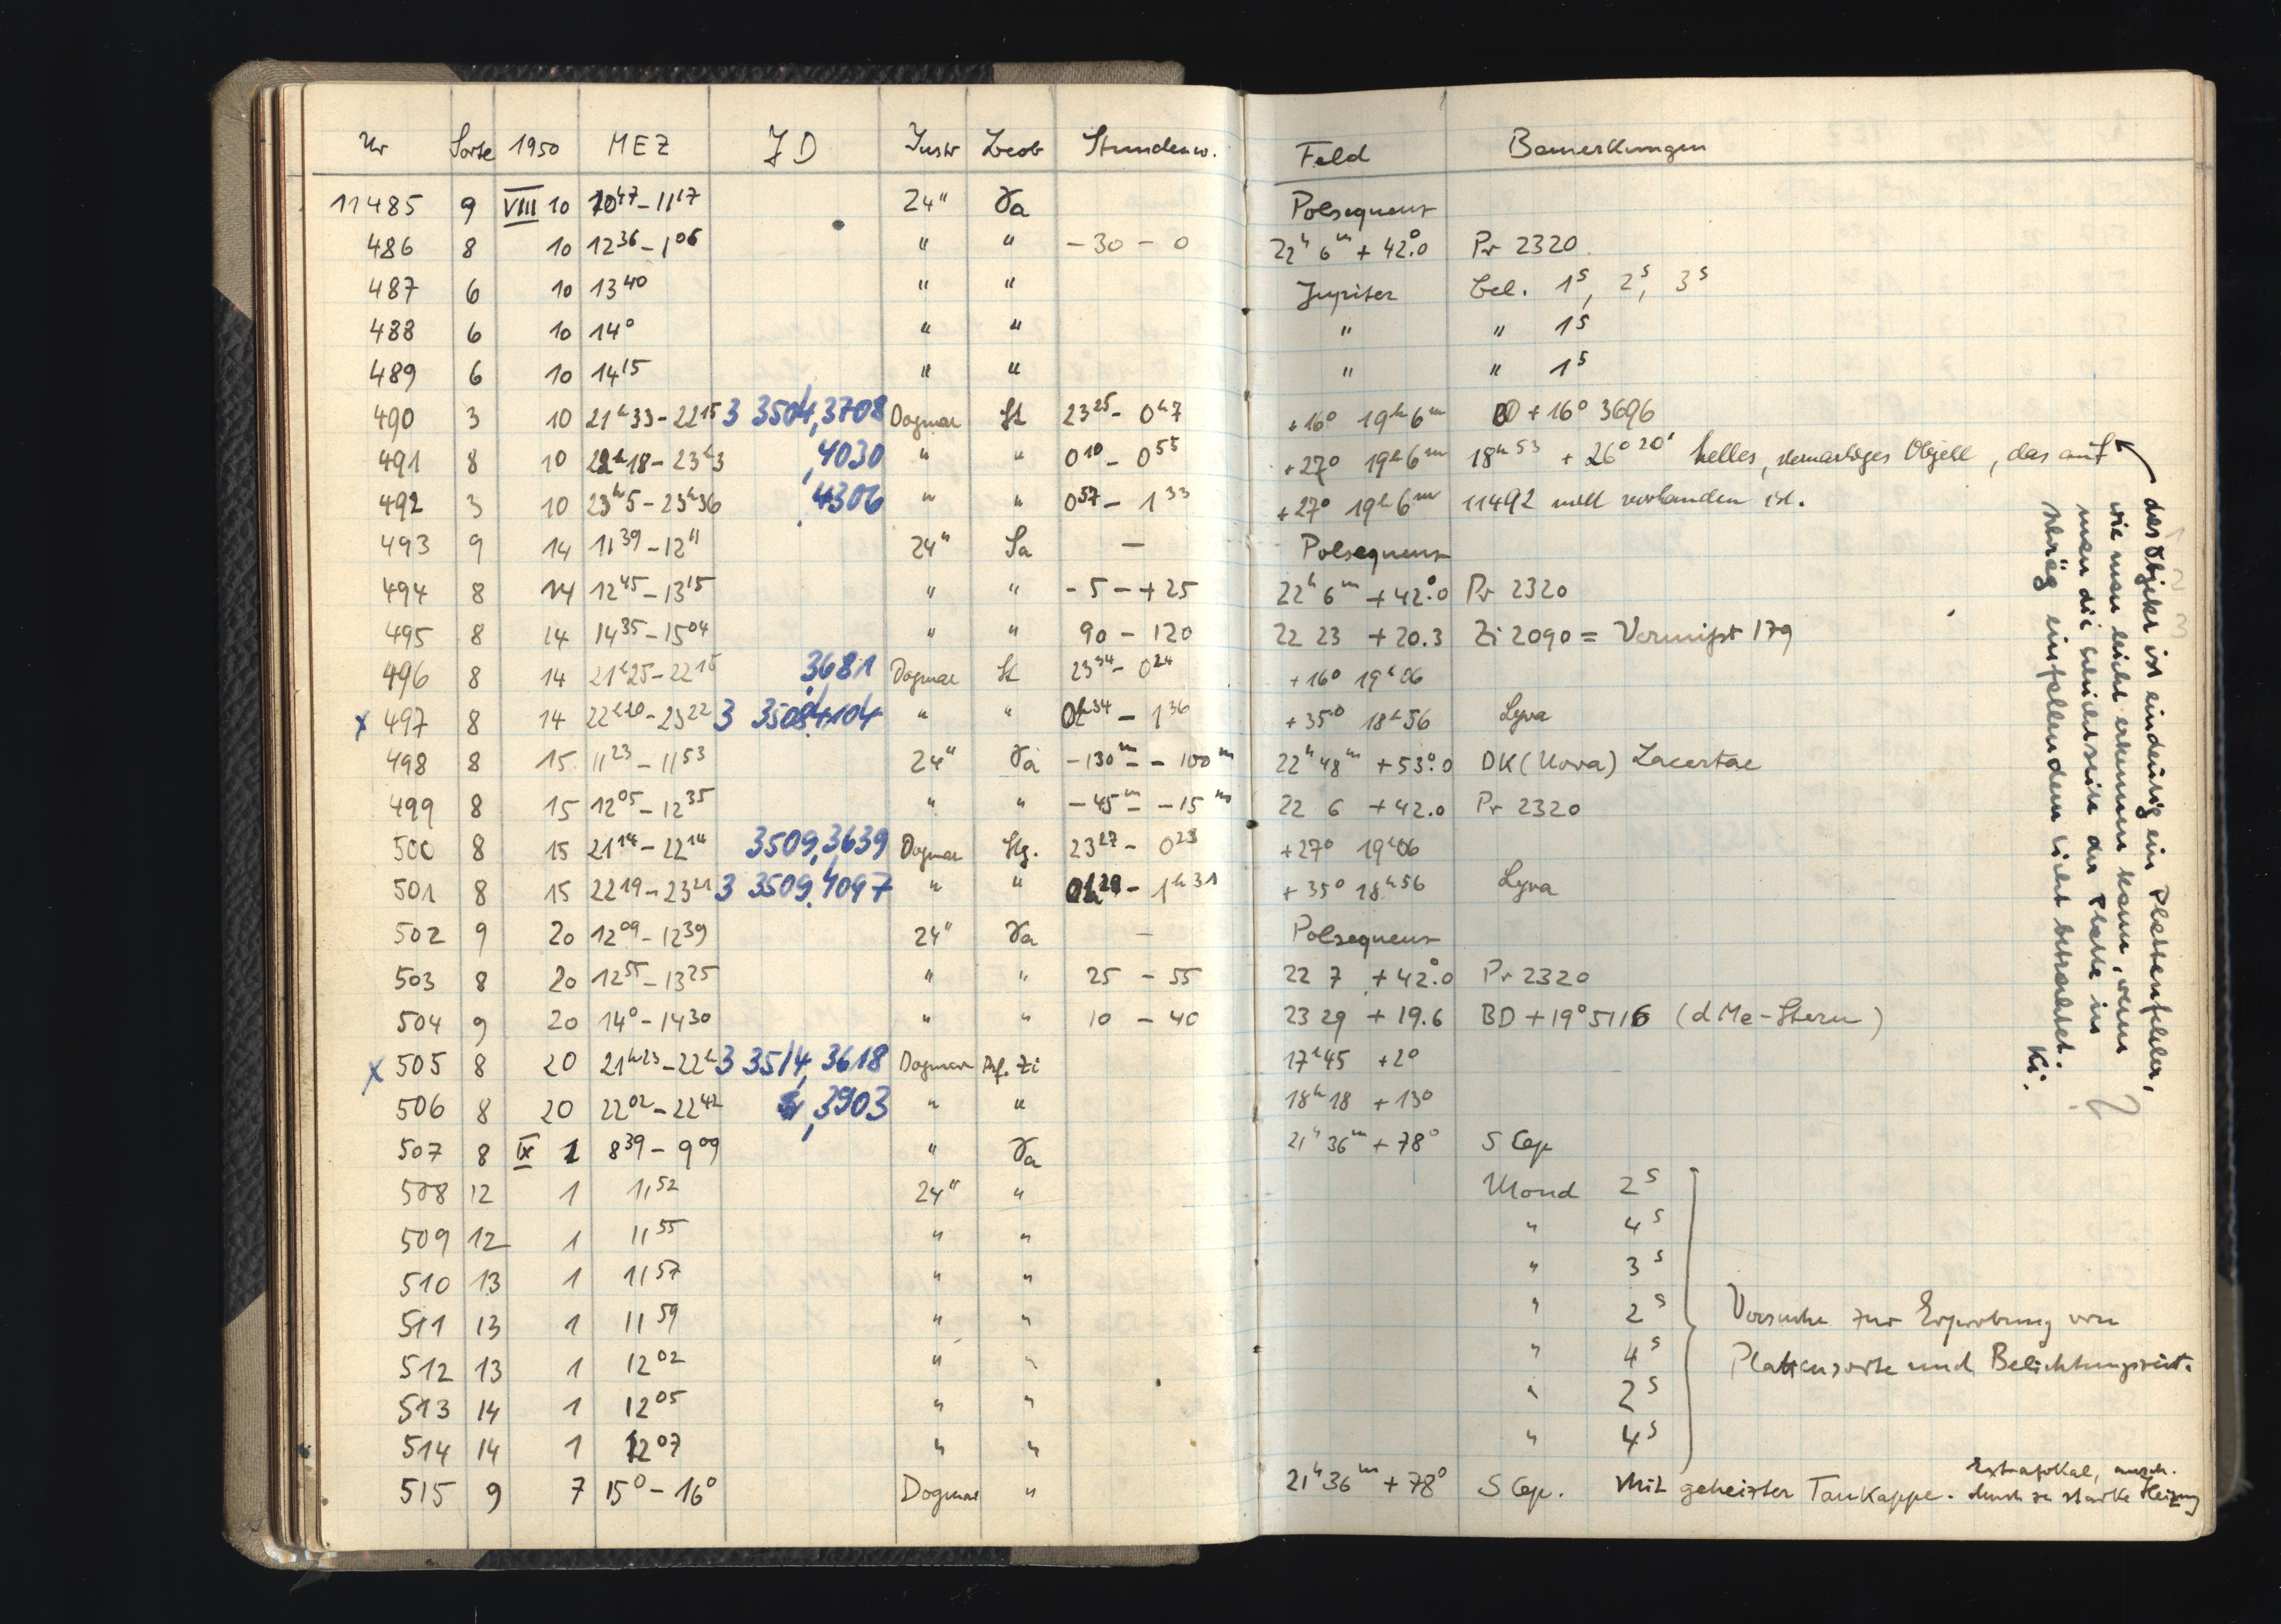 Nr Sorte 1950 MEZ JD Instr Beob Stundenw. Feld Bemerkungen
11485 9 VIII 10 10 47 – 11 17 24" Ta Polsequenz
486 8 10 12 36 – 1 06 " " – 30 – 0 22h 6m + 42°.0 Pr 2320
487 6 10 13 40 " " Jupiter Bel. 1s, 2s, 3s
488 6 10 14 0 " " " " 1s
489 6 10 14 15 " " " " 1s
490 3 10 21h33 – 22 15 3 3504,3708 Dogmar St 23 25 – 0h7 +16° 19h6m BD +16° 3696
491 8 10 22h18 – 23h3 ,4030 " " 0 10 – 0 55 +27° 19h6m 18h53 + 26°20' helles, sternartiges Objekt, das auf
492 3 10 23h5 – 23h36 ,4306 " " 0 57 – 1 33 +27° 19h6m 11492 nicht vorhanden ist.
493 9 14 11 39 – 12 11 24" Ta — Polsequenz
494 8 14 12 45 – 13 15 " " – 5 – + 25 22h 6m + 42°.0 Pr 2320
495 8 14 14 35 – 15 04 " " 90 – 120 22 23 + 20.3 Zi 2090 = Vermißt 179
496 8 14 21h25 – 22 15 ,3681 Dogmar St 23 34 – 0 24 +16° 19h06
x 497 8 14 22h20 – 23 22 3 3508,4104 " " 0h34 – 1 36 +35° 18h56 Lyra
498 8 15 11 23 – 11 53 24" Ta – 130m – – 100m 22h 48m + 53°.0 DK (Nova) Lacertae
499 8 15 12 05 – 12 35 " " – 45m – – 15m 22 6 + 42.0 Pr 2320
500 8 15 21 14 – 22 14 3509,3639 Dogmar Stg. 23 27 – 0 28 +27° 19h06
501 8 15 22 19 – 23 21 3 3509,4097 " " 0h29 – 1h31 +35° 18h56 Lyra
502 9 20 12 09 – 12 39 24" Ta — Polsequenz
503 8 20 12 55 – 13 25 " " 25 – 55 22 7 + 42°.0 Pr 2320
504 9 20 14 0 – 14 30 " " 10 – 40 23 29 + 19.6 BD + 19° 5116 (dMe-Stern)
x 505 8 20 21h23 – 22h 3 3514,3618 Dogmar Prf. Zi 17h45 +2°
506 8 20 22 02 – 22 42 ,3903 " " 18h18 + 13°
507 8 IX 1 8 39 – 9 09 " Ta 21h 36m + 78° S Cep
508 12 1 11 52 24" " Mond 2s
509 12 1 11 55 " " " 4s
510 13 1 11 57 " " " 3s
511 13 1 11 59 " " " 2s Versuche zur Erprobung von
512 13 1 12 02 " " " 4s Plattensorte und Belichtungszeit.
513 14 1 12 05 " " " 2s
514 14 1 12 07 " " " 4s
515 9 7 15 0 – 16 0 Dogmar " 21h 36m + 78° S Cep. Mit geheizter Taukappe. Extrafokal, durch zu starke Heizung
das Objekt ist eindeutig ein Plattenfehler,
wie man leicht erkennen kann, wenn
man die Schichtseite der Platte in
schräg einfallendem Licht betrachtet.
Ki.
1
2
3
?